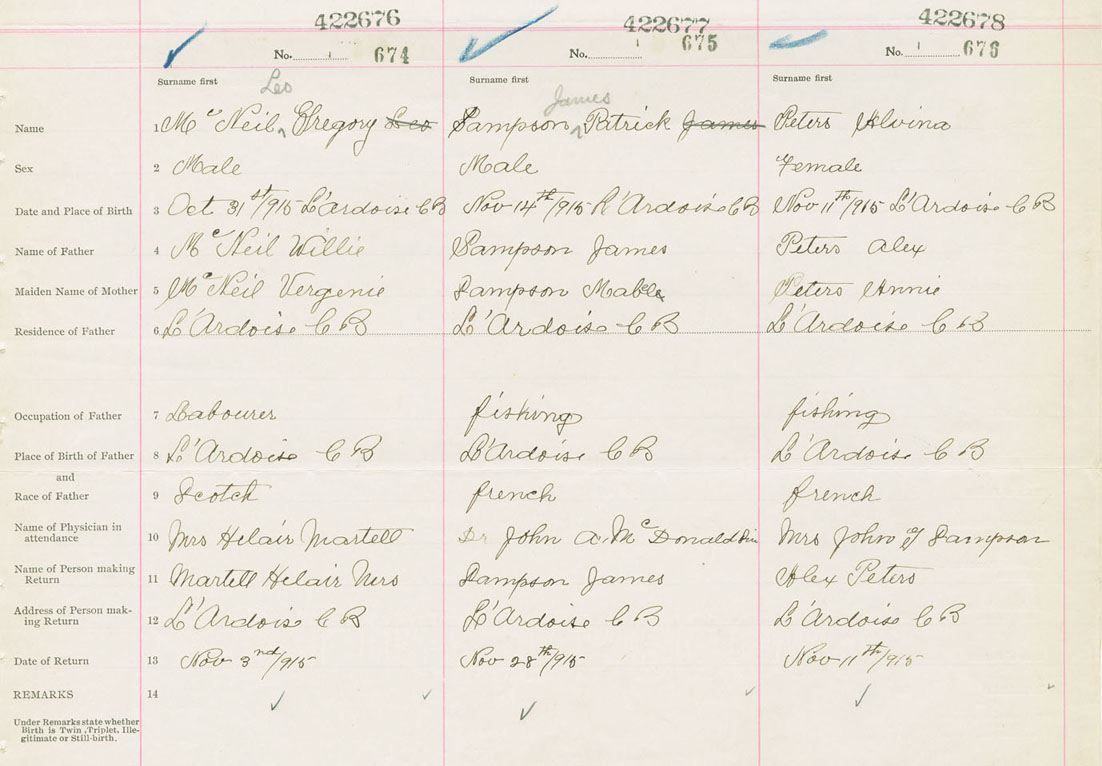 422676 422677 422678
No. 674 No. 675 No. 676
Surname first Surname first Surname first
Leo James
Name 1 Mc Neil, Gregory Leo Sampson Patrick James Peters Alvina
Sex 2 Male Male Female
Date and Place of Birth 3 Oct 31st/915 L'Ardoise CB Nov 14th/915 L'Ardoise CB Nov 11th/915 L'Ardoise CB
Name of Father 4 Mc Neil Willie Sampson James Peters Alex
Maiden Name of Mother 5 Mc Neil Vergenie Sampson Mable Peters Annie
Residence of Father 6 L'Ardoise CB L'Ardoise CB L'Ardoise CB
Occupation of Father 7 Labourer fishing fishing
Place of Birth of Father 8 L'Ardoise CB L'Ardoise CB L'Ardoise CB
and
Race of Father 9 Scotch french french
Name of Physician in
attendance 10 Mrs Helair Martell Dr John A. Mc Donald Mrs John Sampson
Name of Person making
Return 11 Martell Helair Mrs Sampson James Alex Peters
Address of Person mak-
ing Return 12 L'Ardoise CB L'Ardoise CB L'Ardoise CB
Date of Return 13 Nov 3nd/915 Nov 28th/915 Nov 11th/915
REMARKS 14
Under Remarks state whether
Birth is Twin, Triplet, Ille-
gitimate or Still-birth.